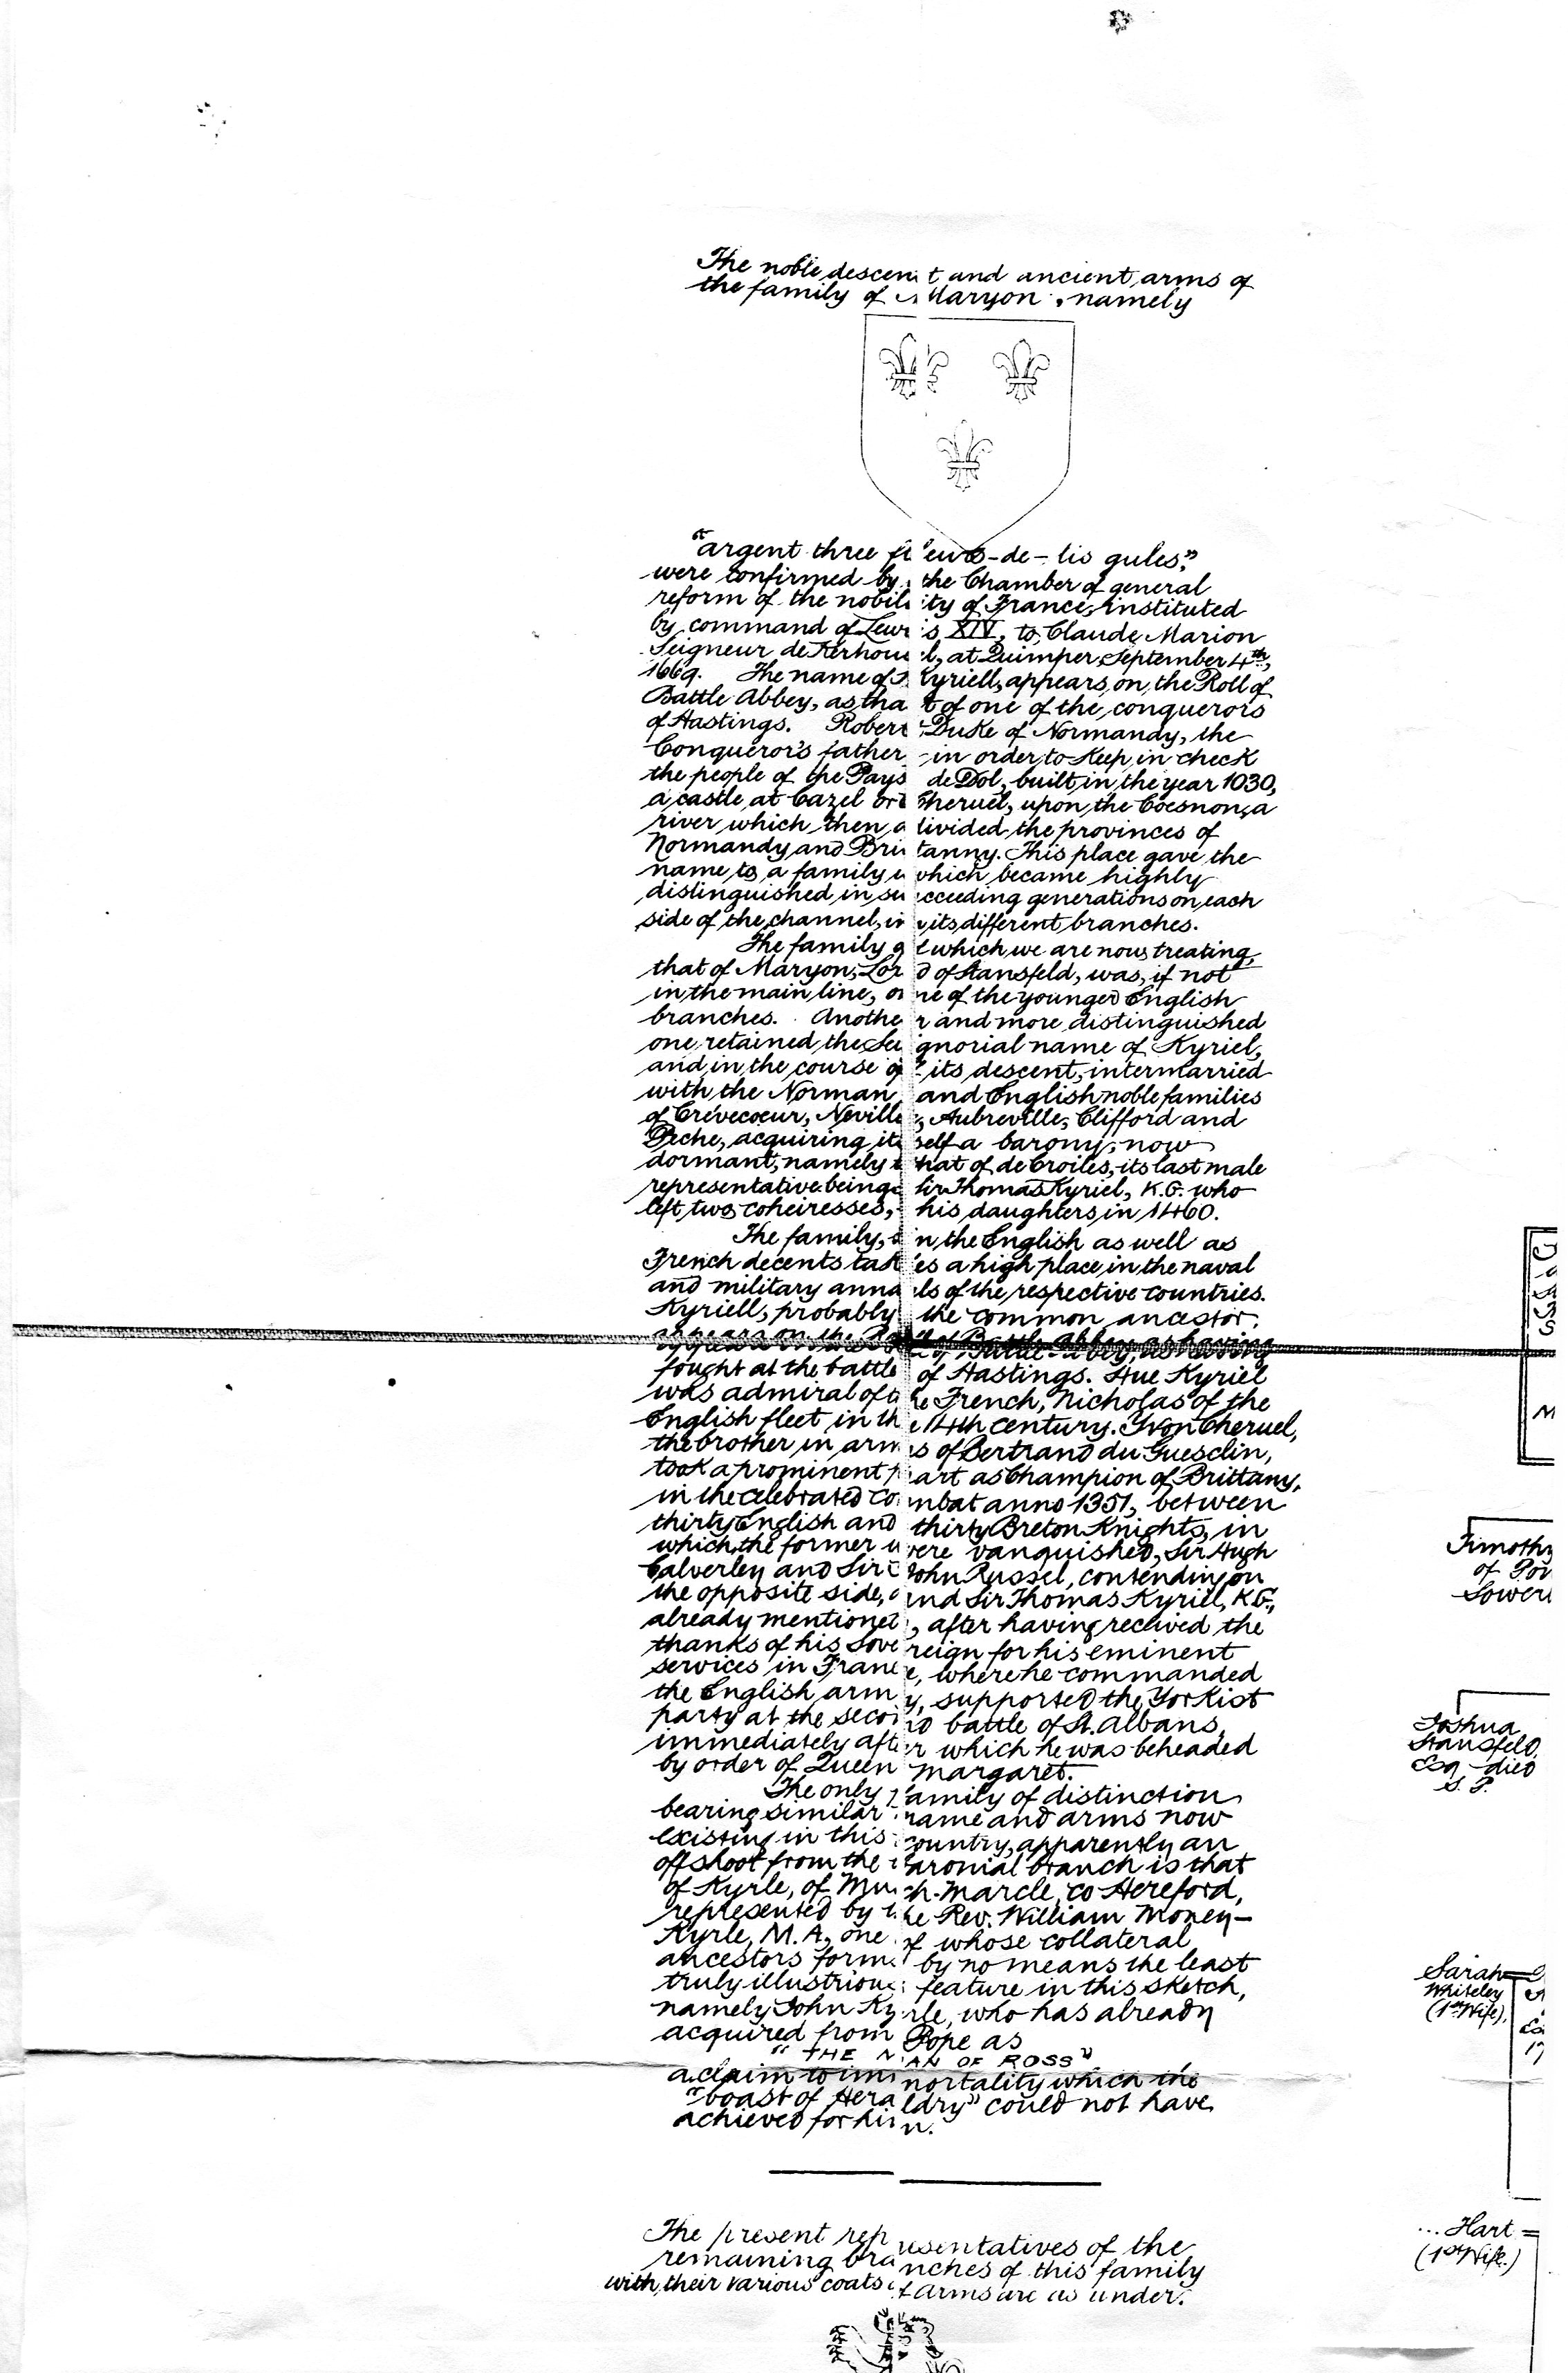 The noble descent and ancient arms of
the family of Maryon, namely
"argent three fleurs-de-lis gules,"
were confirmed by the Chamber of general
reform of the nobility of France, instituted
by command of Lewis XIV, to Claude Marion
Seigneur de Kerhouel, at Quimper, September 4th,
1669. The name of Kyriell, appears, on, the Roll of
Battle Abbey, as that of one of the conquerors
of Hastings. Robert Duke of Normandy, the
Conqueror's father in order to keep in check
the people of the Pays de Dol, built, in the year 1030,
a castle, at Cazel or Cheruel, upon the Coesnon, a
river which then divided the provinces of
Normandy and Brittanny. This place gave the
name to a family which became highly
distinguished in succeeding generations on each
side of the channel, in its different branches.
The family of which we are now treating,
that of Maryon, Lord of Stansfeld, was, if not
in the main line, one of the younger English
branches. Another and more distinguished
one retained the Seignorial name of Kyriel,
and in the course of its descent, intermarried
with the Norman and English noble families
of Crévecoeur, Neville, Aubreville, Clifford and
Peche, acquiring itself a barony, now
dormant, namely that of de Croiles, its last male
representative being Sir Thomas Kyriel, K.G. who
left two coheiresses, his daughters in 1460.
The family, in the English as well as
French decents takes a high place in the naval
and military annals of the respective countries.
Kyriell, probably the common ancestor,
appears on the Roll of Battle Abbey, as having
fought at the battle of Hastings. Hue Kyriel
was admiral of the French, Nicholas of the
English fleet in the 14th century. Yvon Cheruel,
the brother in arms of Bertrand du Guesclin,
took a prominent part as Champion of Brittany,
in the celebrated combat anno 1351, between
thirty English and thirty Breton Knights, in
which the former were vanquished, Sir Hugh
Calverley and Sir John Russel, contending on
the opposite side, and Sir Thomas Kyriel, K.G.,
already mentioned, after having received the
thanks of his Sovereign for his eminent
services in France, where he commanded
the English army, supported the Yorkist
party at the second battle of St. Albans,
immediately after which he was beheaded
by order of Queen Margaret.
The only family of distinction
bearing similar name and arms now
existing in this country, apparently an
offshoot from the baronial branch is that
of Kyrle, of Much-Marcle, co Hereford,
represented by the Rev. William Money-
Kyrle, M.A., one of whose collateral
ancestors forms by no means the least
truly illustrious feature in this sketch,
namely John Kyrle, who has already
acquired from Pope as
"THE MAN OF ROSS"
a claim to immortality which the
"boast of Heraldry" could not have
achieved for him.
The present representatives of the
remaining branches of this family
with their various coats of arms are as under.
Timothy
of
Joshua
Stansfeld,
Esq died
S. P.
Sarah
Whiteley
(1st Wife),
... Hart =
(1st Wife.)